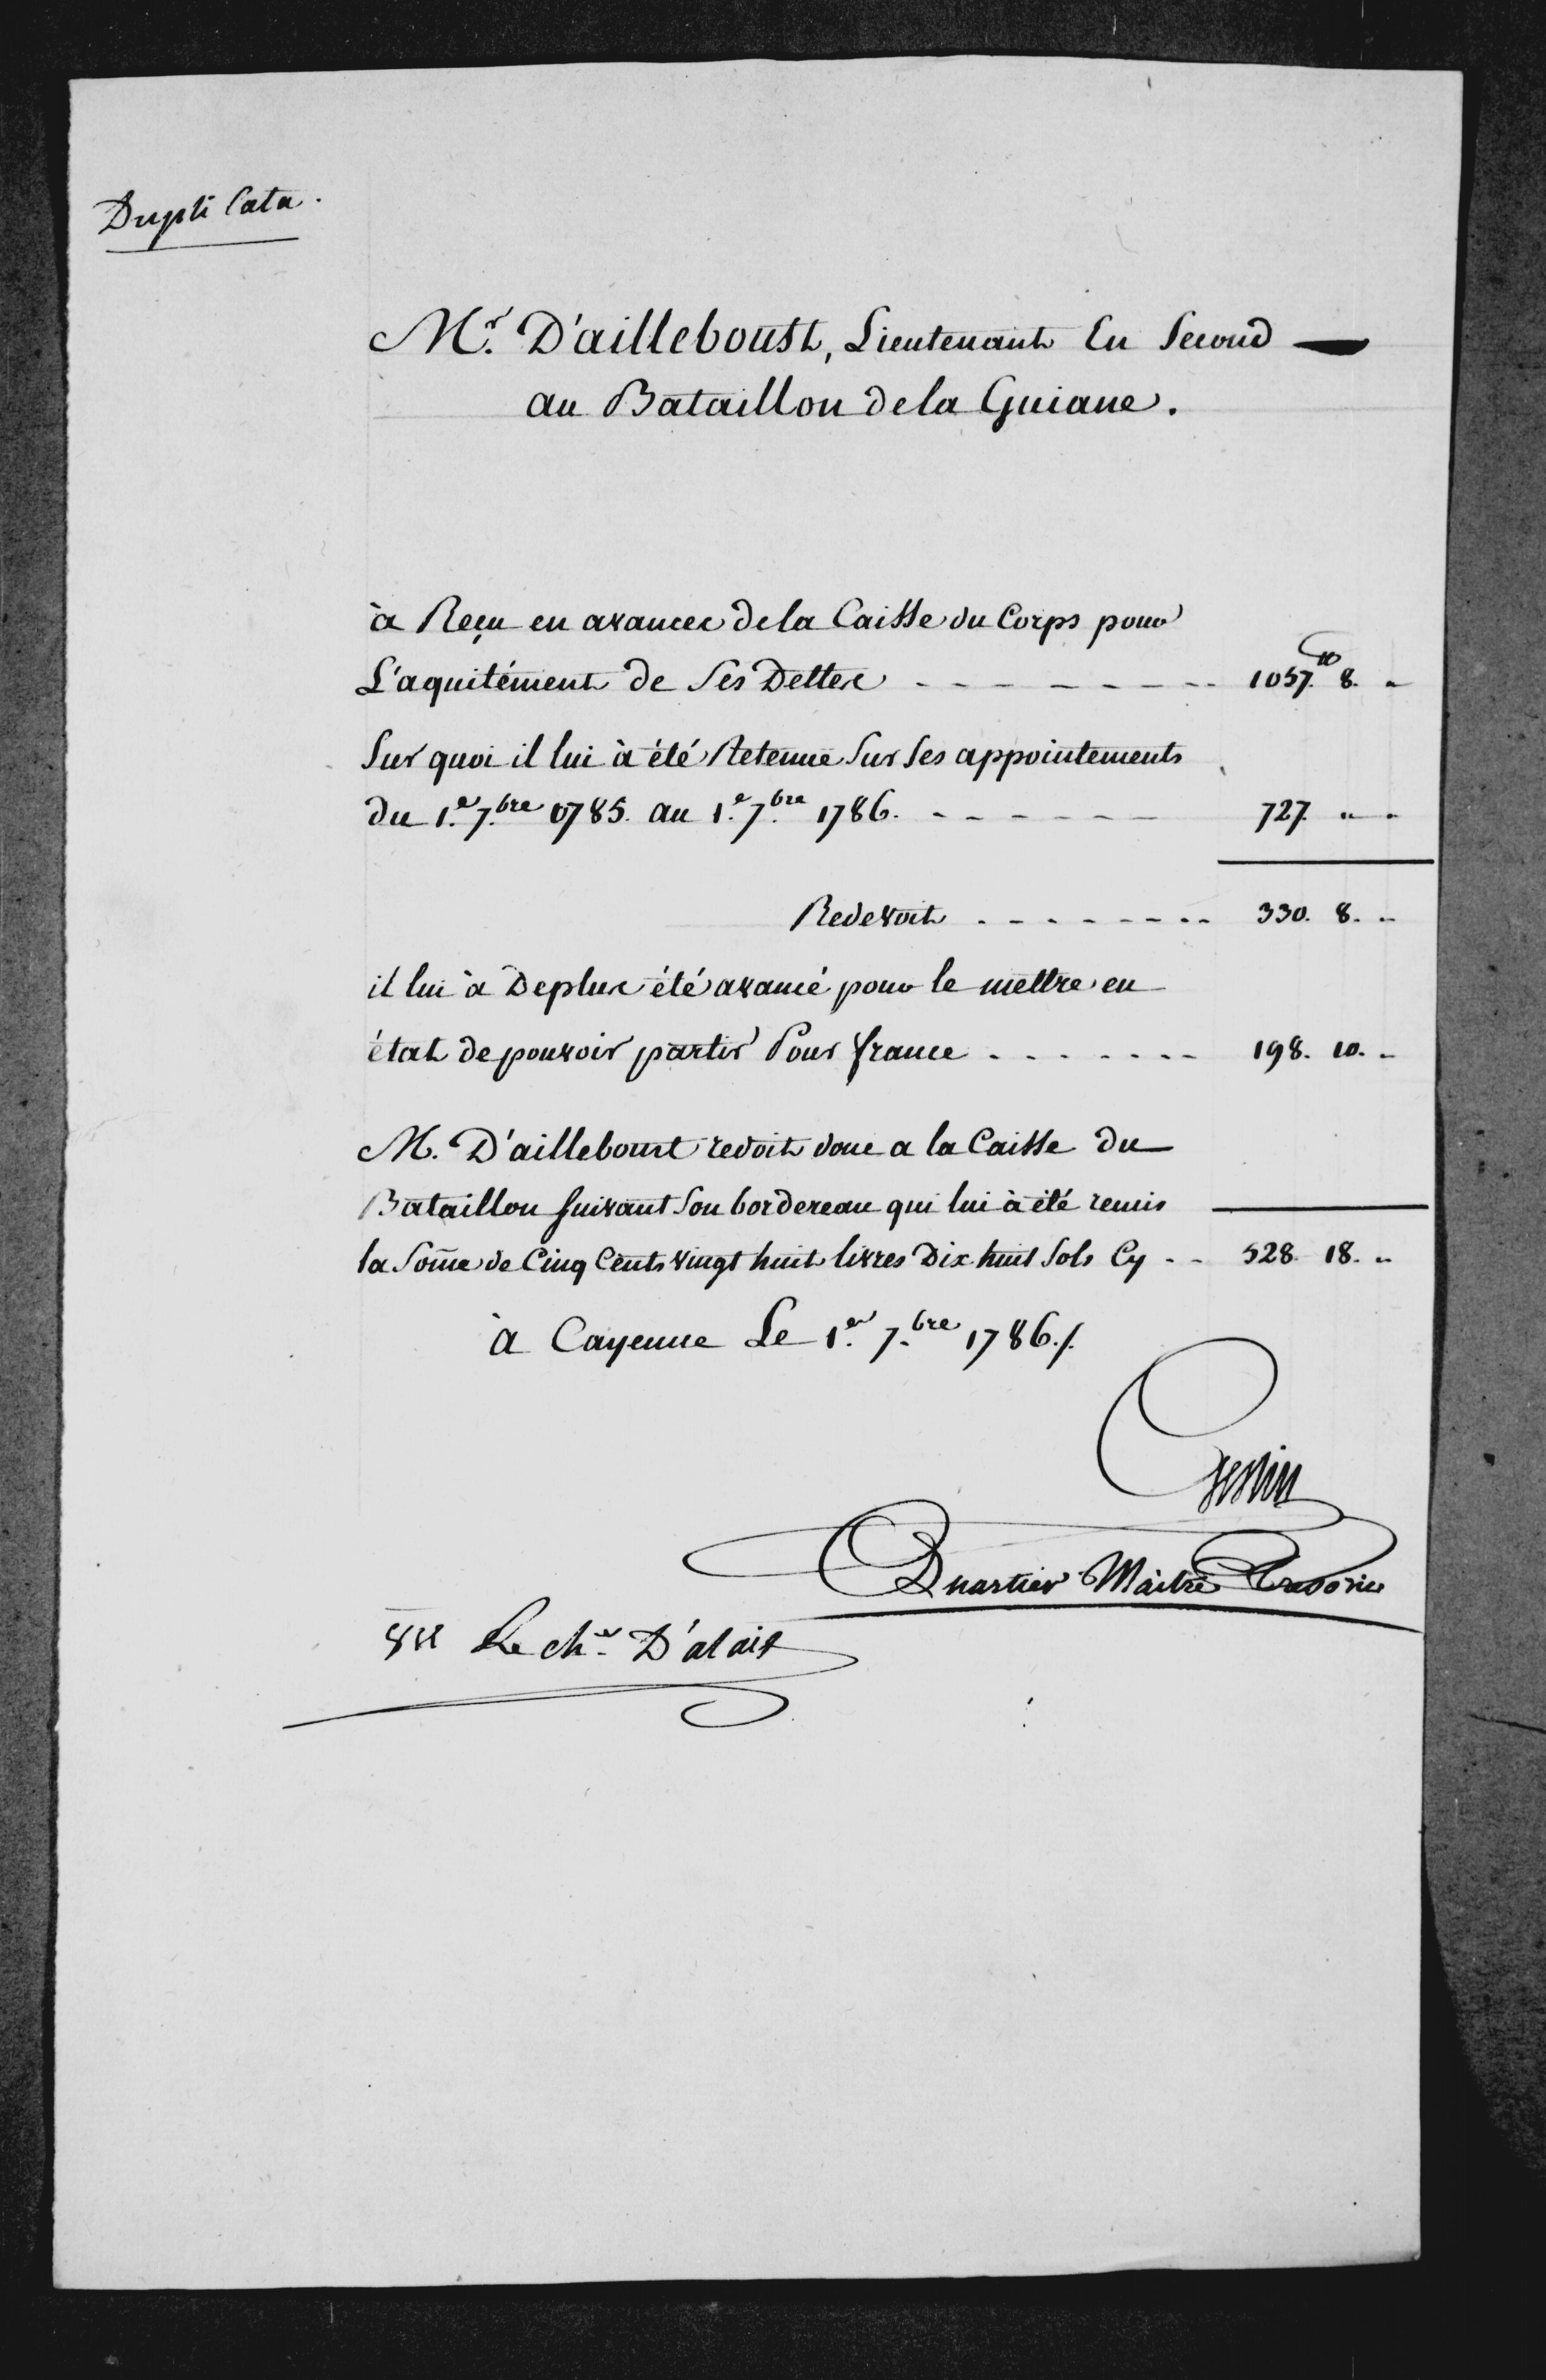 Dupli Cata.
Mr. D'ailleboust, Lieutenant En Second
au Bataillon de la Guiane.
à Reçu en avances de la Caisse du Corps pour
L'aquitément de Ses Dettes - - - - - - - - 1057.tt 8. "
Sur quoi il lui à été Retenue Sur Ses appointements
du 1.er 7.bre 1785. au 1.er 7.bre 1786. - - - - - - 727. " "
Redevoit - - - - - - - - 330. 8. "
il lui à Deplus été avancé pour le mettre en
état de pouvoir partir Pour france - - - - - - - 198. 10. "
M. D'ailleboust redoit donc a la Caisse du
Bataillon suivant Son bordereau qui lui à été remis
la Some de Cinq Cents vingt huit livres Dix huit Sols Cy - - 528. 18. "
à Cayenne Le 1.er 7.bre 1786./.
Quartier Maitre Trésorier
Vu Le Ch.er D'alais